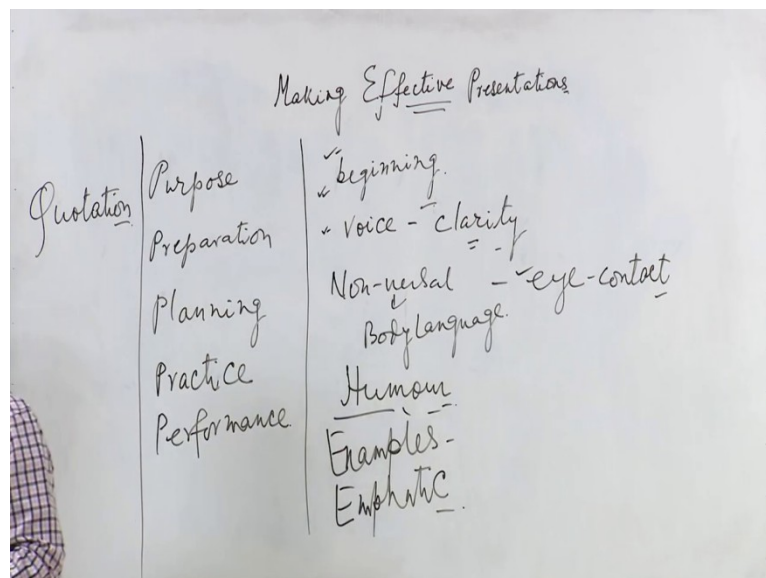 Making Effective Presentations
Quotation
Purpose
Preparation
Planning
Practice
Performance
beginning.
voice - clarity
Non-verbal - eye-contact
Body language.
Humour
Examples-
Emphatic